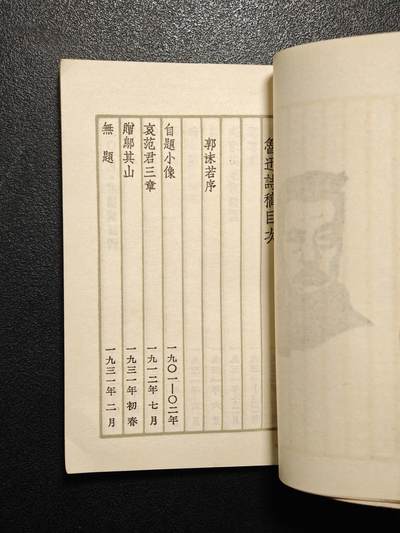 魯迅詩稿目次
郭沫若序
自題小像 一九〇一—〇二年
哀范君三章 一九一二年七月
贈鄔其山 一九三一年初春
無題 一九三一年二月